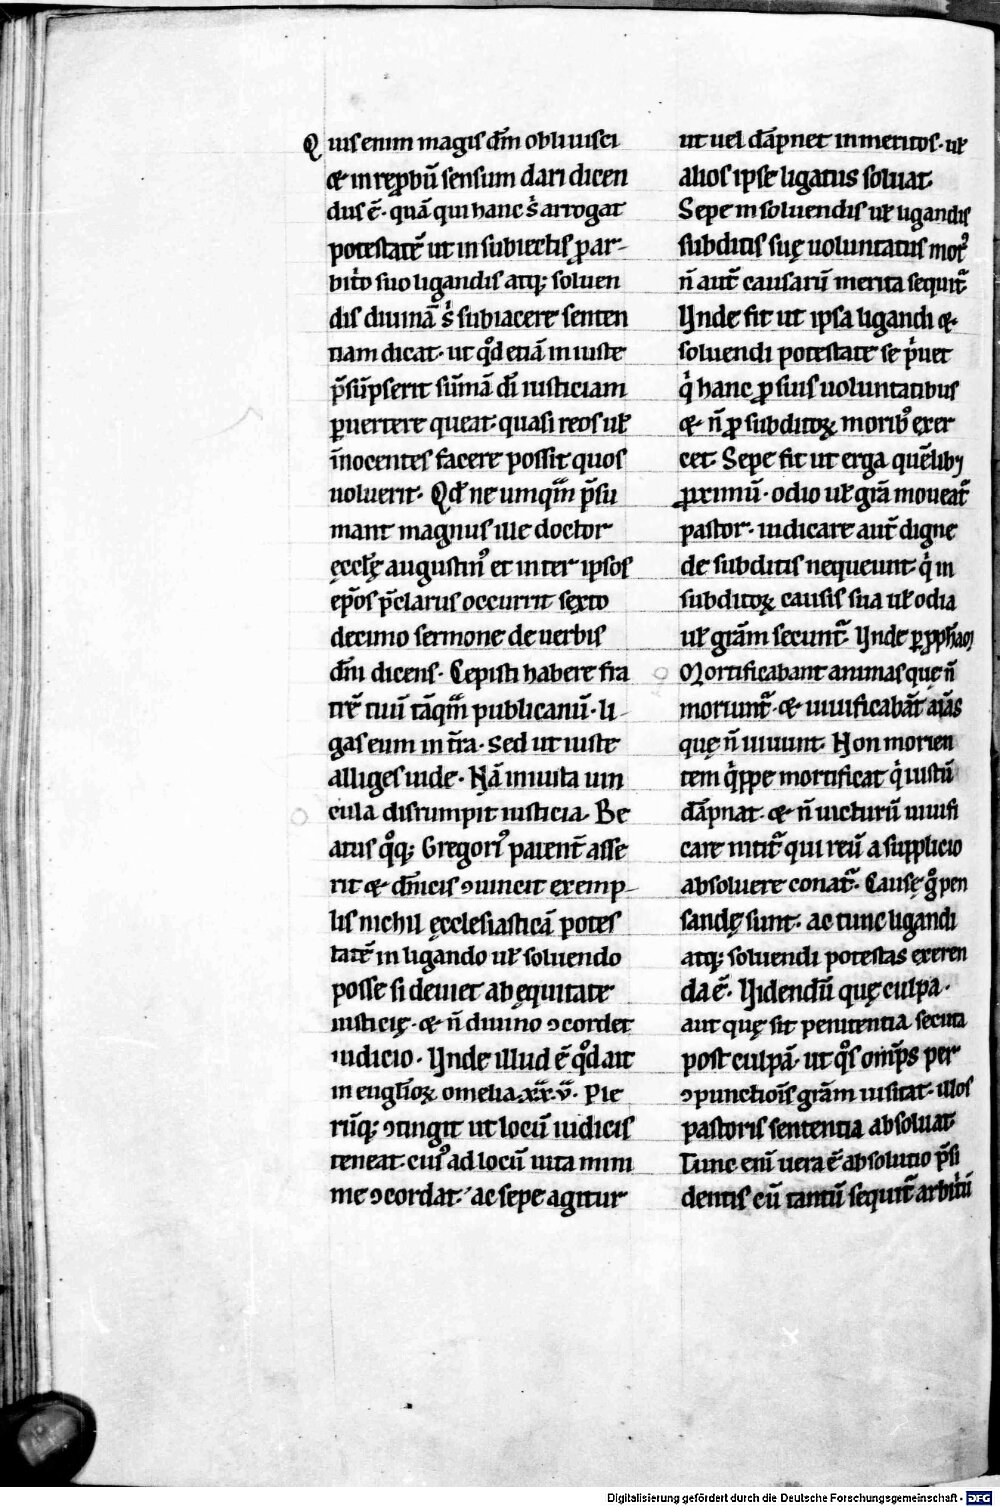 Quis enim magis dm̄ obliuisci
& in rep̱bū sensum dari dicen
dus ē. quā qui hanc sͥ arrogat
potestatē ut in subiectis ꝓ ar-
bitͥo suo ligandis atq; soluen
dis diuinā sͥ subiacere senten
tiam dicat. ut qͦd etiā iniuste
p̄sūpserit sūmā dī iusticiam
ꝑuertere queat. quasi reos uł
īnocentes facere possit quos
uoluerit. Qd̄ ne umqm̄ p̄su
mant magnus ille doctor
ęcclę̄ augustin᾽ et inter ipsos
ep̄os p̄clarus occurrit sexto
decimo sermone de uerbis
dn̄i dicens. Cepisti habere fra
trē tuū tāqm̄ publicanū. li-
gas eum in tr̄a. Sed ut iuste
alliges uide. Nā iniusta uin
cula disrumpit iusticia. Be
atus qͦq; Gregori᾽ patent̄ asse
rit & dn̄icis ↄuincit exemp-
lis nichil ęcclesiasticā potes
tatē in ligando uł soluendo
posse si deuiet ab ęquitate
iusticię. & n̄ diuino ↄcordet
iudicio. Unde illud ē qͦd ait
in eugl̄ioꝝ omelia. xx. v. Ple
rūq; ↄtingit ut locū iudicis
teneat. cui᾽ ad locū uita mini
me ↄcordat. ac sepe agitur
ut uel dāpnet inmeritos. uł
alios ipse ligatus soluat.
Sepe in soluendis uł ligandis
subditis suę uoluntatis mot᾽
n̄ aut̄ causarū merita sequit̄
Unde fit ut ipsa ligandi &
soluendi potestate se pͥuet
qͥ hanc ꝓ suis uoluntatibus
& n̄ ꝓ subditoꝝ morib᾽ exer
cet. Sepe fit ut erga quēlibȝ
ꝓximū. odio uł gr̄a moueat̄
pastor. iudicare aut̄ digne
de subditis nequeunt. qͥ in
subditoꝝ causis sua uł odia
uł gr̄am secunt̄. Unde ꝑ ꝓph̄am
Mortificabant animas que n̄
moriunt̄. & uiuificabāt aīas
quę n̄ uiuunt. Non morien
tem qͥppe mortificat qͥ iustū
dāpnat. & n̄ uicturū uiuifi
care nitit̄ qui reū a supplicio
absoluere conat̄. Causę gͦ pen
sandę sunt. ac tunc ligandi
atq; soluendi potestas exeren
da ē. Uidendū quę culpa.
aut quę sit penitentia secuta
post culpā. ut qͦs omp̄s per
ↄpunctiois̄ gr̄am uisitat. illos
pastoris sententia absoluat.
Tunc eni᷑ uera ē absolutio p̄si
dentis cū tantū sequit̄ arbitͥū